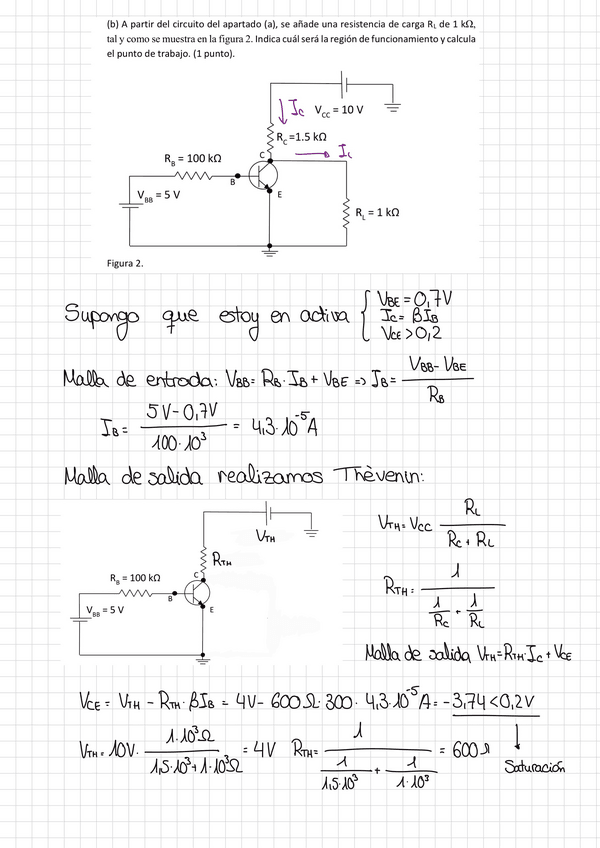 (b) A partir del circuito del apartado (a), se añade una resistencia de carga RL de 1 kΩ,
tal y como se muestra en la figura 2. Indica cuál será la región de funcionamiento y calcula
el punto de trabajo. (1 punto).
Ic
VCC = 10 V
RC =1.5 kΩ
C
IL
RB = 100 kΩ
B
E
VBB = 5 V
RL = 1 kΩ
Figura 2.
Supongo que estoy en activa { VBE = 0,7V
IC = βIB
VCE > 0,2
Malla de entrada: VBB = RB · IB + VBE => IB = (VBB - VBE) / RB
IB = (5V - 0,7V) / (100 · 10³) = 4,3 · 10⁻⁵ A
Malla de salida realizamos Thèvenin:
VTH
RTH
RB = 100 kΩ
C
B
E
VBB = 5 V
VTH = VCC RL / (RC + RL)
RTH = 1 / (1/RC + 1/RL)
Malla de salida VTH = RTH · IC + VCE
VCE = VTH - RTH · βIB = 4V - 600 Ω · 300 · 4,3 · 10⁻⁵ A = -3,74 < 0,2V
VTH = 10V · 1 · 10³Ω / (1,5 · 10³ + 1 · 10³Ω) = 4V RTH = 1 / (1/1,5·10³ + 1/1·10³) = 600 Ω
Saturación